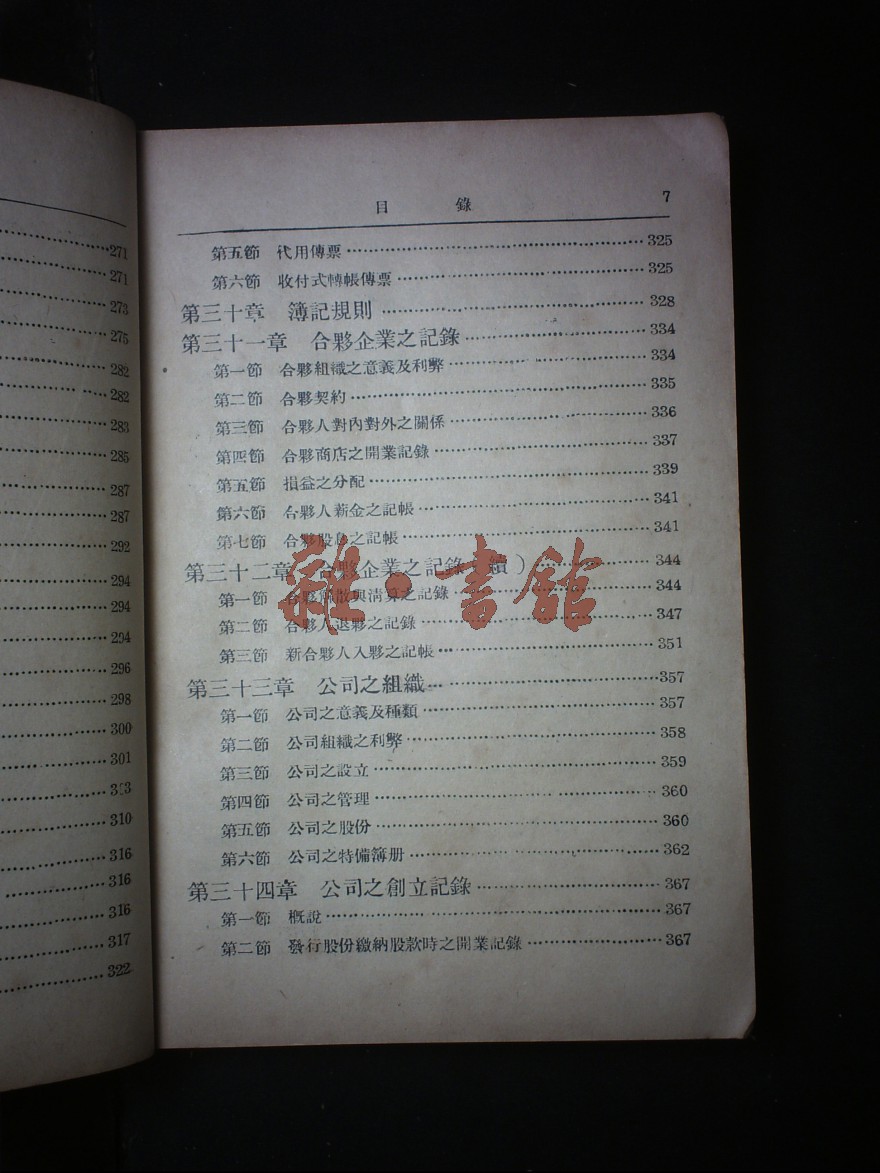 271
271
273
275
282
282
283
285
287
287
292
294
294
294
296
298
300
301
303
310
316
316
316
317
322
目 錄 7
第五節 代用傳票 325
第六節 收付式轉帳傳票 325
第三十章 簿記規則 328
第三十一章 合夥企業之記錄 334
第一節 合夥組織之意義及利弊 334
第二節 合夥契約 335
第三節 合夥人對內對外之關係 336
第四節 合夥商店之開業記錄 337
第五節 損益之分配 339
第六節 合夥人薪金之記帳 341
第七節 合夥股息之記帳 341
第三十二章 合夥企業之記錄（續） 344
第一節 合夥解散與清算之記錄 344
第二節 合夥人退夥之記錄 347
第三節 新合夥人入夥之記帳 351
第三十三章 公司之組織 357
第一節 公司之意義及種類 357
第二節 公司組織之利弊 358
第三節 公司之設立 359
第四節 公司之管理 360
第五節 公司之股份 360
第六節 公司之特備簿册 362
第三十四章 公司之創立記錄 367
第一節 概說 367
第二節 發行股份繳納股款時之開業記錄 367
雜·書館